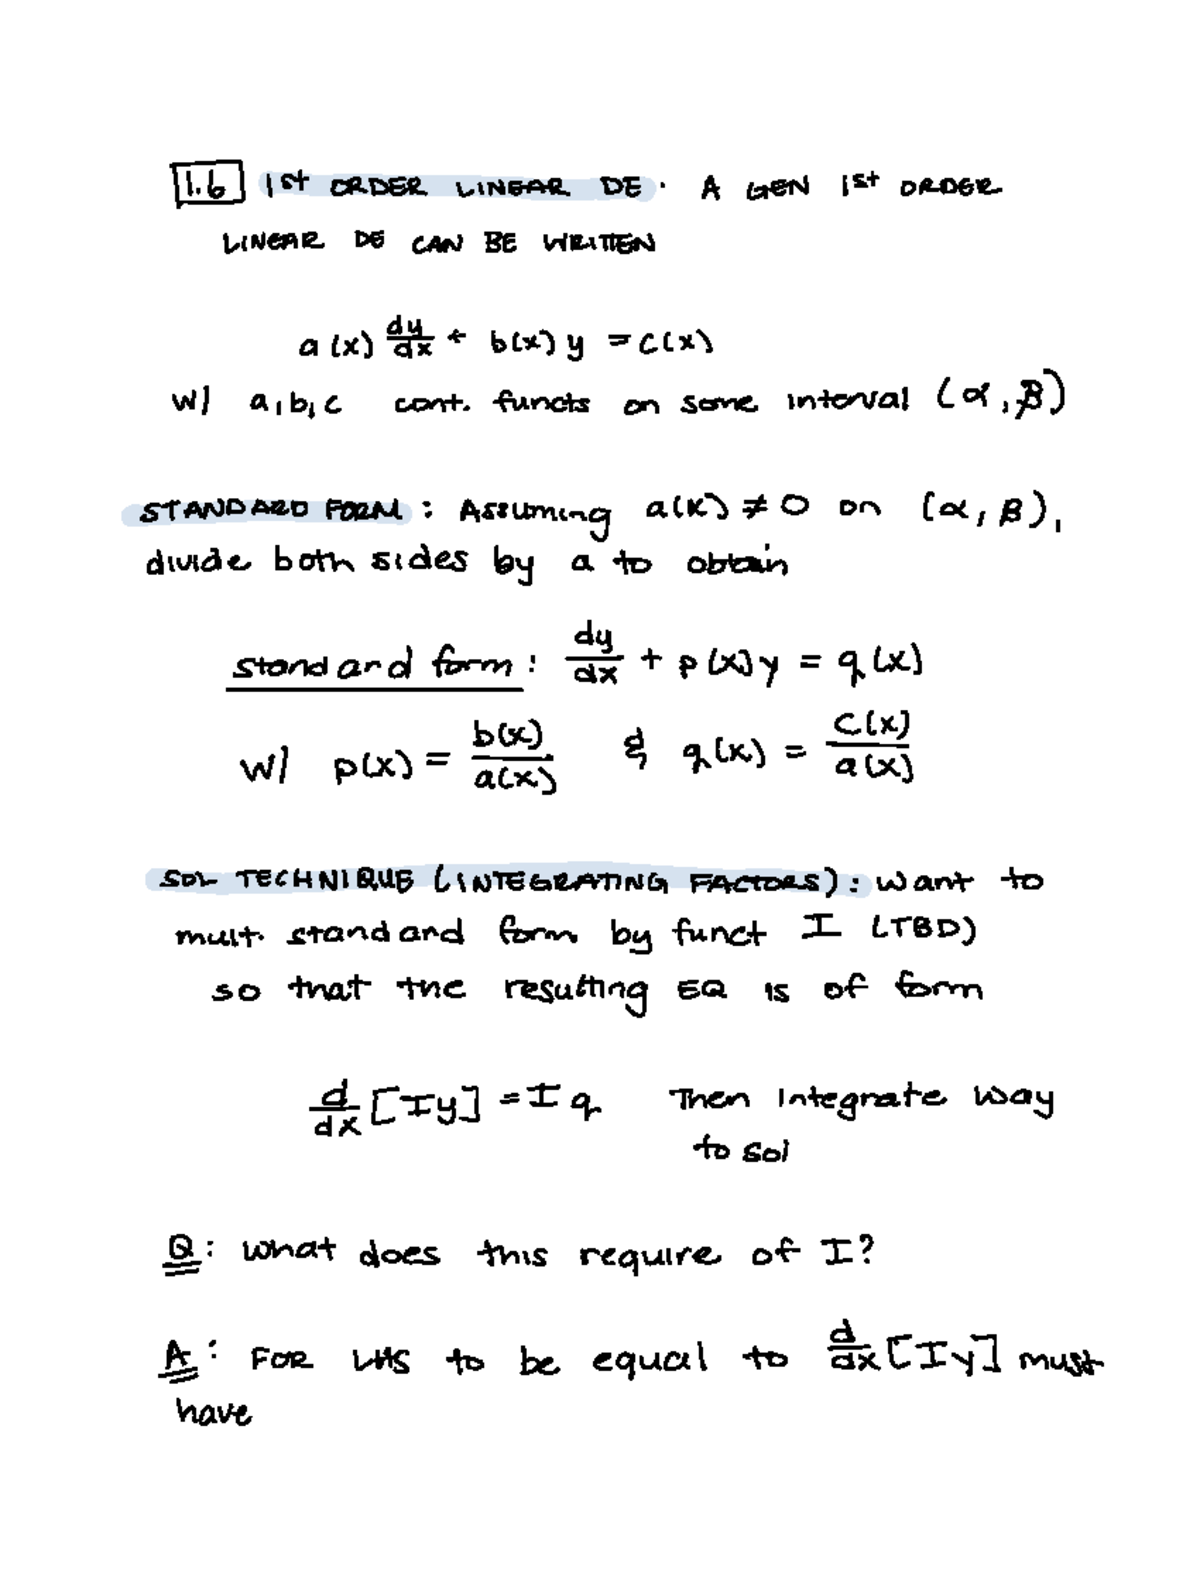 1.6 1st ORDER LINEAR DE. A GEN 1st ORDER
LINEAR DE CAN BE WRITTEN
a(x) dy/dx + b(x) y = c(x)
w/ a, b, c cont. functs on some interval (α, β)
STANDARD FORM: Assuming a(x) ≠ 0 on (α, β),
divide both sides by a to obtain
standard form: dy/dx + p(x)y = q(x)
w/ p(x) = b(x)/a(x) & q(x) = c(x)/a(x)
SOL TECHNIQUE (INTEGRATING FACTORS): want to
mult. standard form by funct I (TBD)
so that the resulting EQ is of form
d/dx [Iy] = I q Then integrate way
to sol
Q: what does this require of I?
A: FOR LHS to be equal to d/dx [Iy] must
have